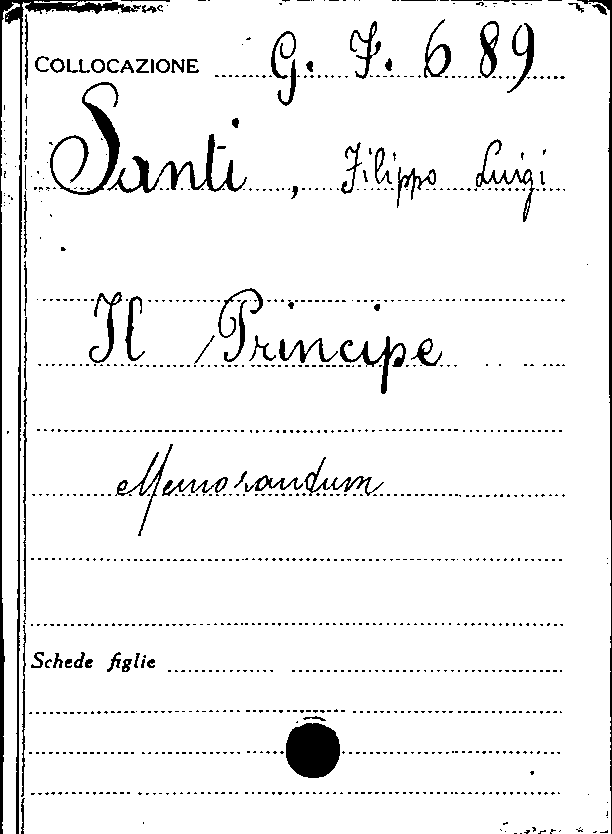 COLLOCAZIONE G. F. 6 89
Santi, Filippo Luigi
Il Principe
Memorandum
Schede figlie